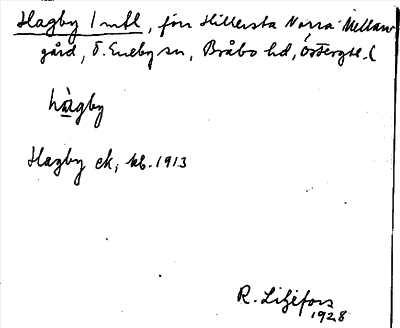 Hagby 1 mtl, förr Hillersta Norra Mellan-
gård, Ö. Eneby sn, Bråbo hd, Östergtl.
hàgby
Hagby ek, kb. 1913
R. Liljefors
1928